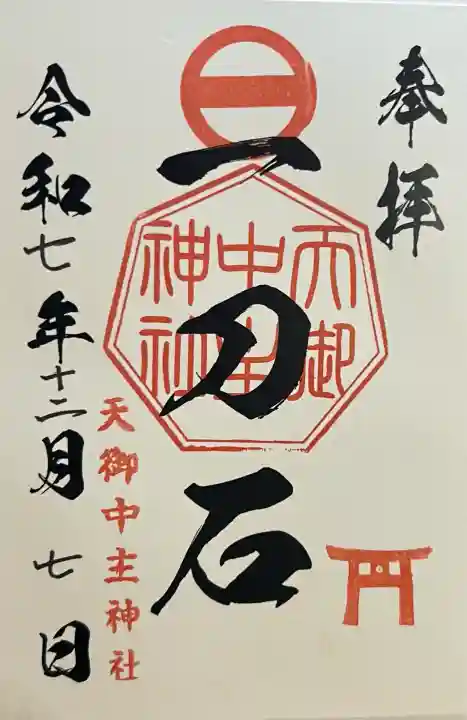 奉拝
一刀石
天御
中主
神社
天御中主神社
令和七年十二月七日